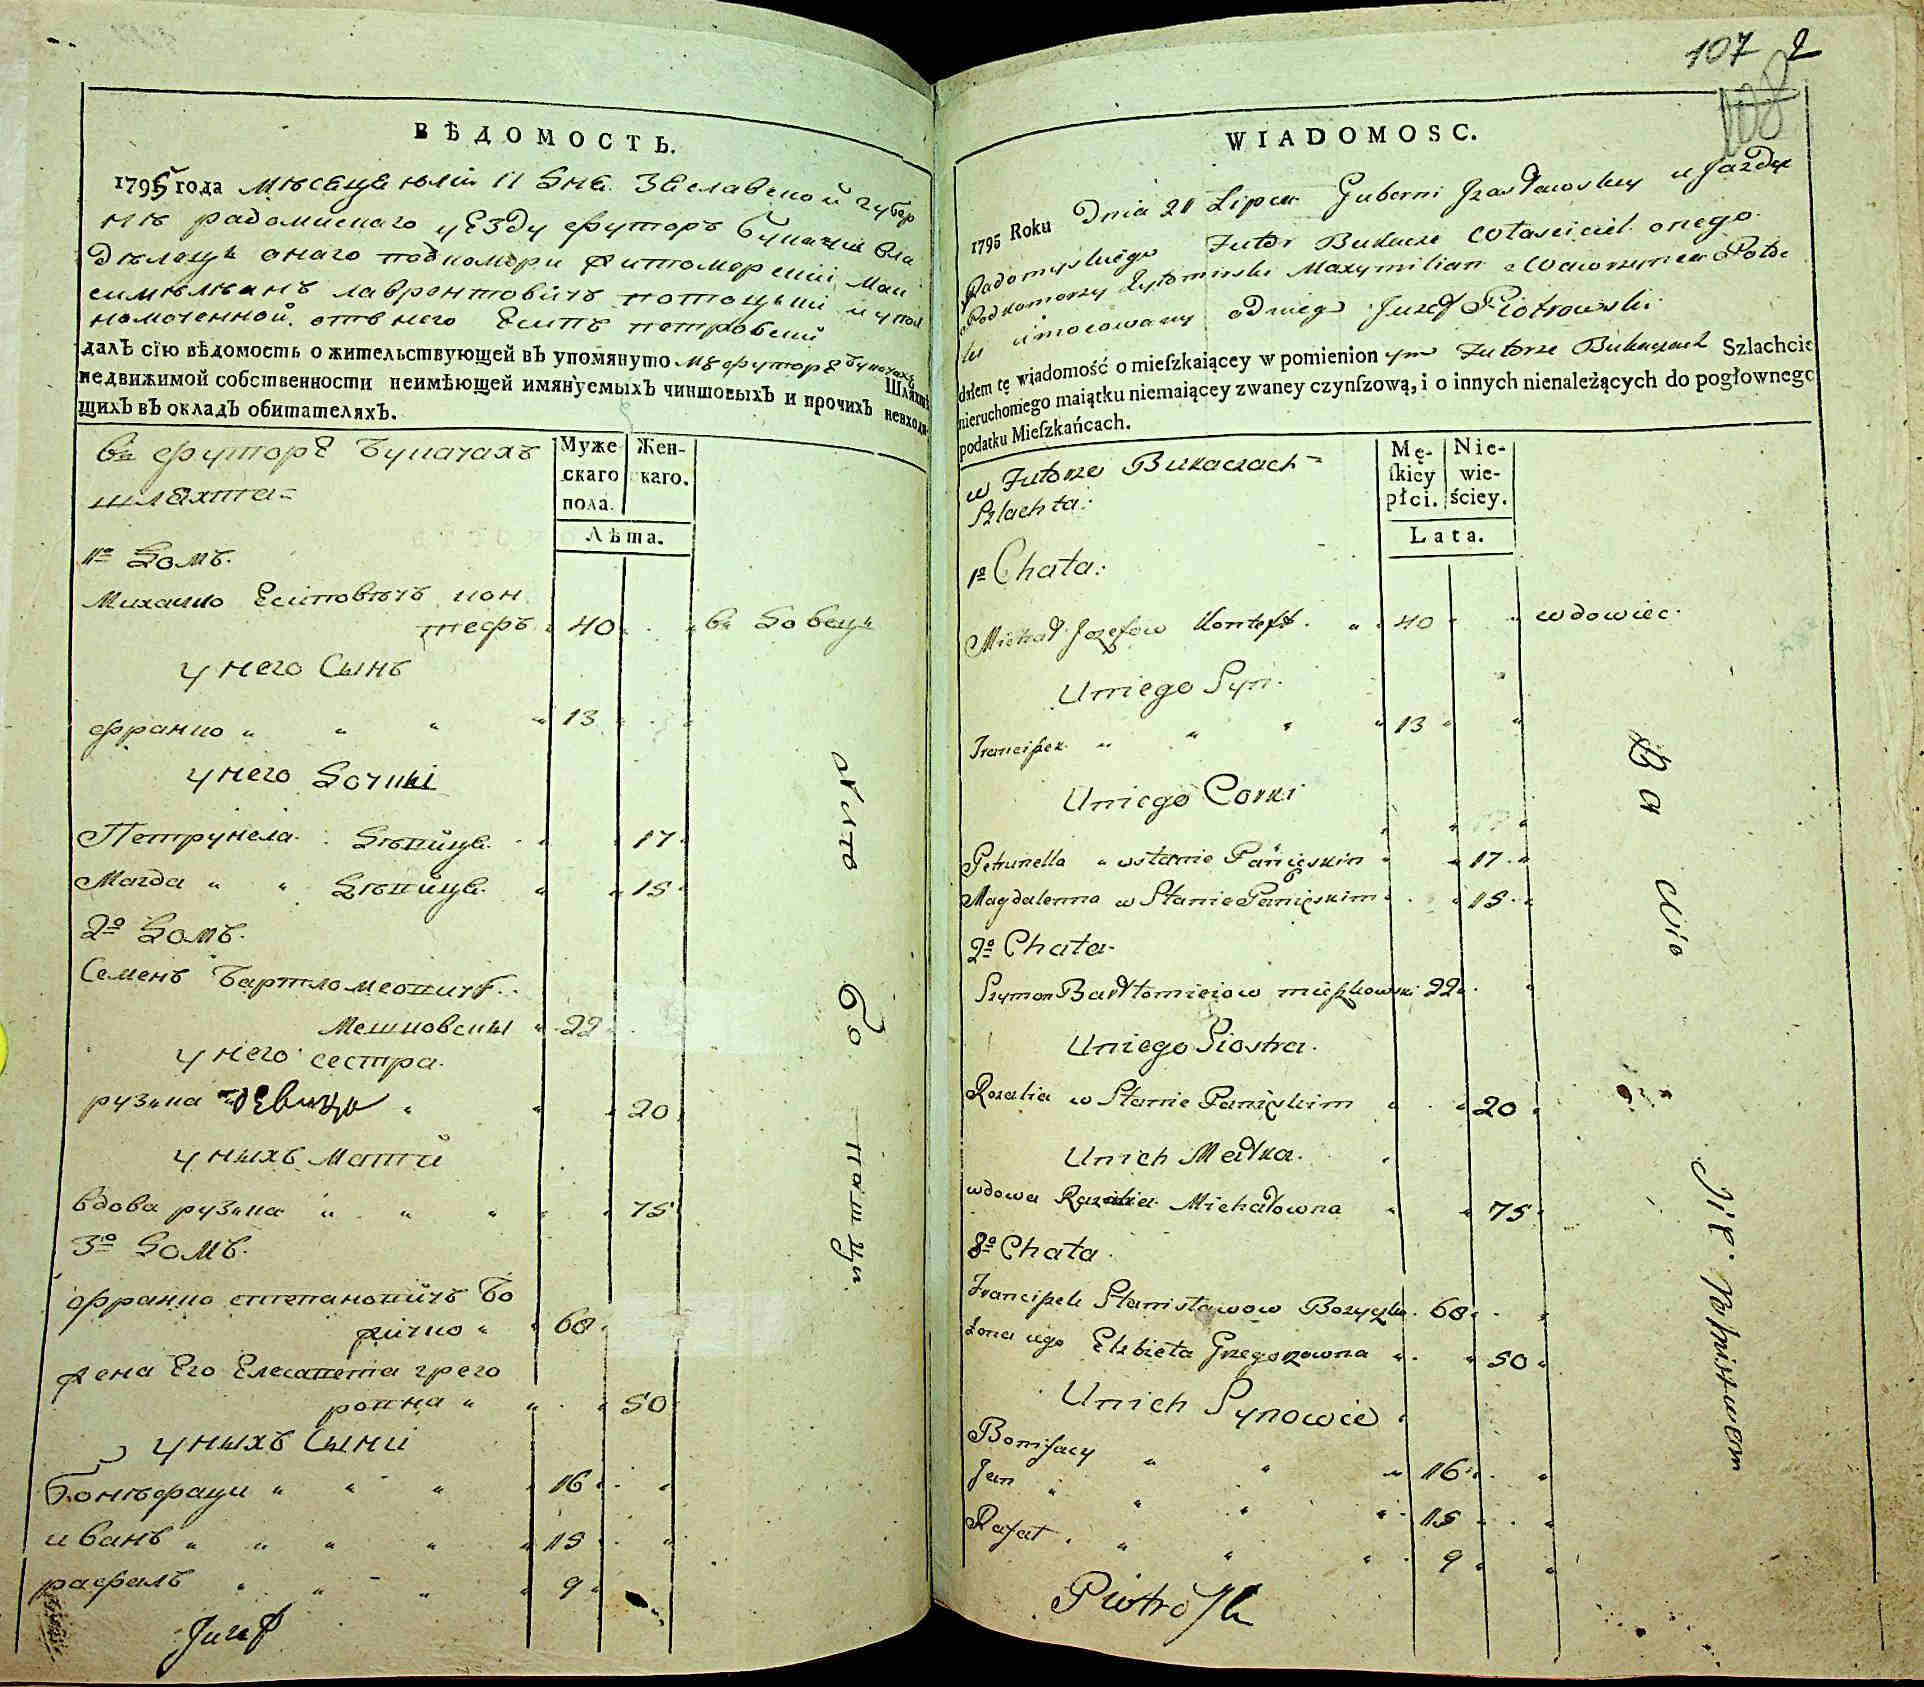 ВѢДОМОСТЬ.
1795 года мѣсяца юлія 11 дня Заславской губер
нѣ радомискаго уезду футоръ Букачи вла
дѣлецъ онаго подкомори житомерскій Мак
симилианъ лаврентовичъ потоцкий и упол
номоченной отъ него Есипъ петровский
далъ сїю вѣдомость о жительствующей въ упомянуто мъ футорѣ букачахъ Шляхтѣ
недвижимой собственности неимѣющей имянуемыхъ чиншовыхъ и прочихъ невходя-
щихъ въ окладъ обитателяхъ.
въ футорѣ Букачахъ
шляхта
Муже скаго пола. Жен- каго.
Лѣта.
1о Домъ.
Михайло Есиповичъ кон
тефъ 40 вдовецъ
у него Сынъ
франко 13
у него дочки
Петрунела дѣвица 17
Магда дѣвица 15
2о Домъ.
Семенъ Бартломеовичъ
Мешковски 22
у него сестра
рузиа девица 20
у ныхъ мати
вдова рузиа 75
3о Домъ.
франко степановичъ Бо
жичко 60
жена Его Елесавета грего
ровна 50
у ныхъ Сыни
Бонъфаци 16
иванъ 15
рафалъ 9
Juzef
107 2
108
WIADOMOSC.
1795 Roku Dnia 21 Lipca Guberni Izasławskey u Jazdu
Radomyskiego Futor Bukacze własciciel onego
Podkomorzy Zytomirski Maxymilian Wawrzyniec Potoc
ki umocowany od niego Juzef Piotrowski
dałem tę wiadomość o mieſzkaiącey w pomienion ym Futorze Bukaczach Szlachcie
nieruchomego maiątku niemaiącey zwaney czynſzową, i o innych nienależących do pogłownego
podatku Mieſzkańcach.
w Futorze Bukaczach
Szlachta:
Mę- ſkiey płci. Nie- wie- ściey.
Lata.
1o Chata:
Michał Jozefow Konteft 40 wdowiec
Uniego Syn.
Franciſzek 13
Uniego Corki
Petrunella w stanie Panięskim 17
Magdalenna w Stanie Panięskim 15
2o Chata
Szymon Bartłomieiow mieſzkowski 22
Uniego Siostra.
Rozalia w Stanie Panięskim 20
Unich Matka.
wdowa Rozalia Michałowna 75
3o Chata
Franciſzek Stanisławow Bozyczko 60
Zona iego Elzbieta Grzegorzowna 50
Unich Synowie
Bonifacy 16
Jan 15
Rafał 9
Piotro